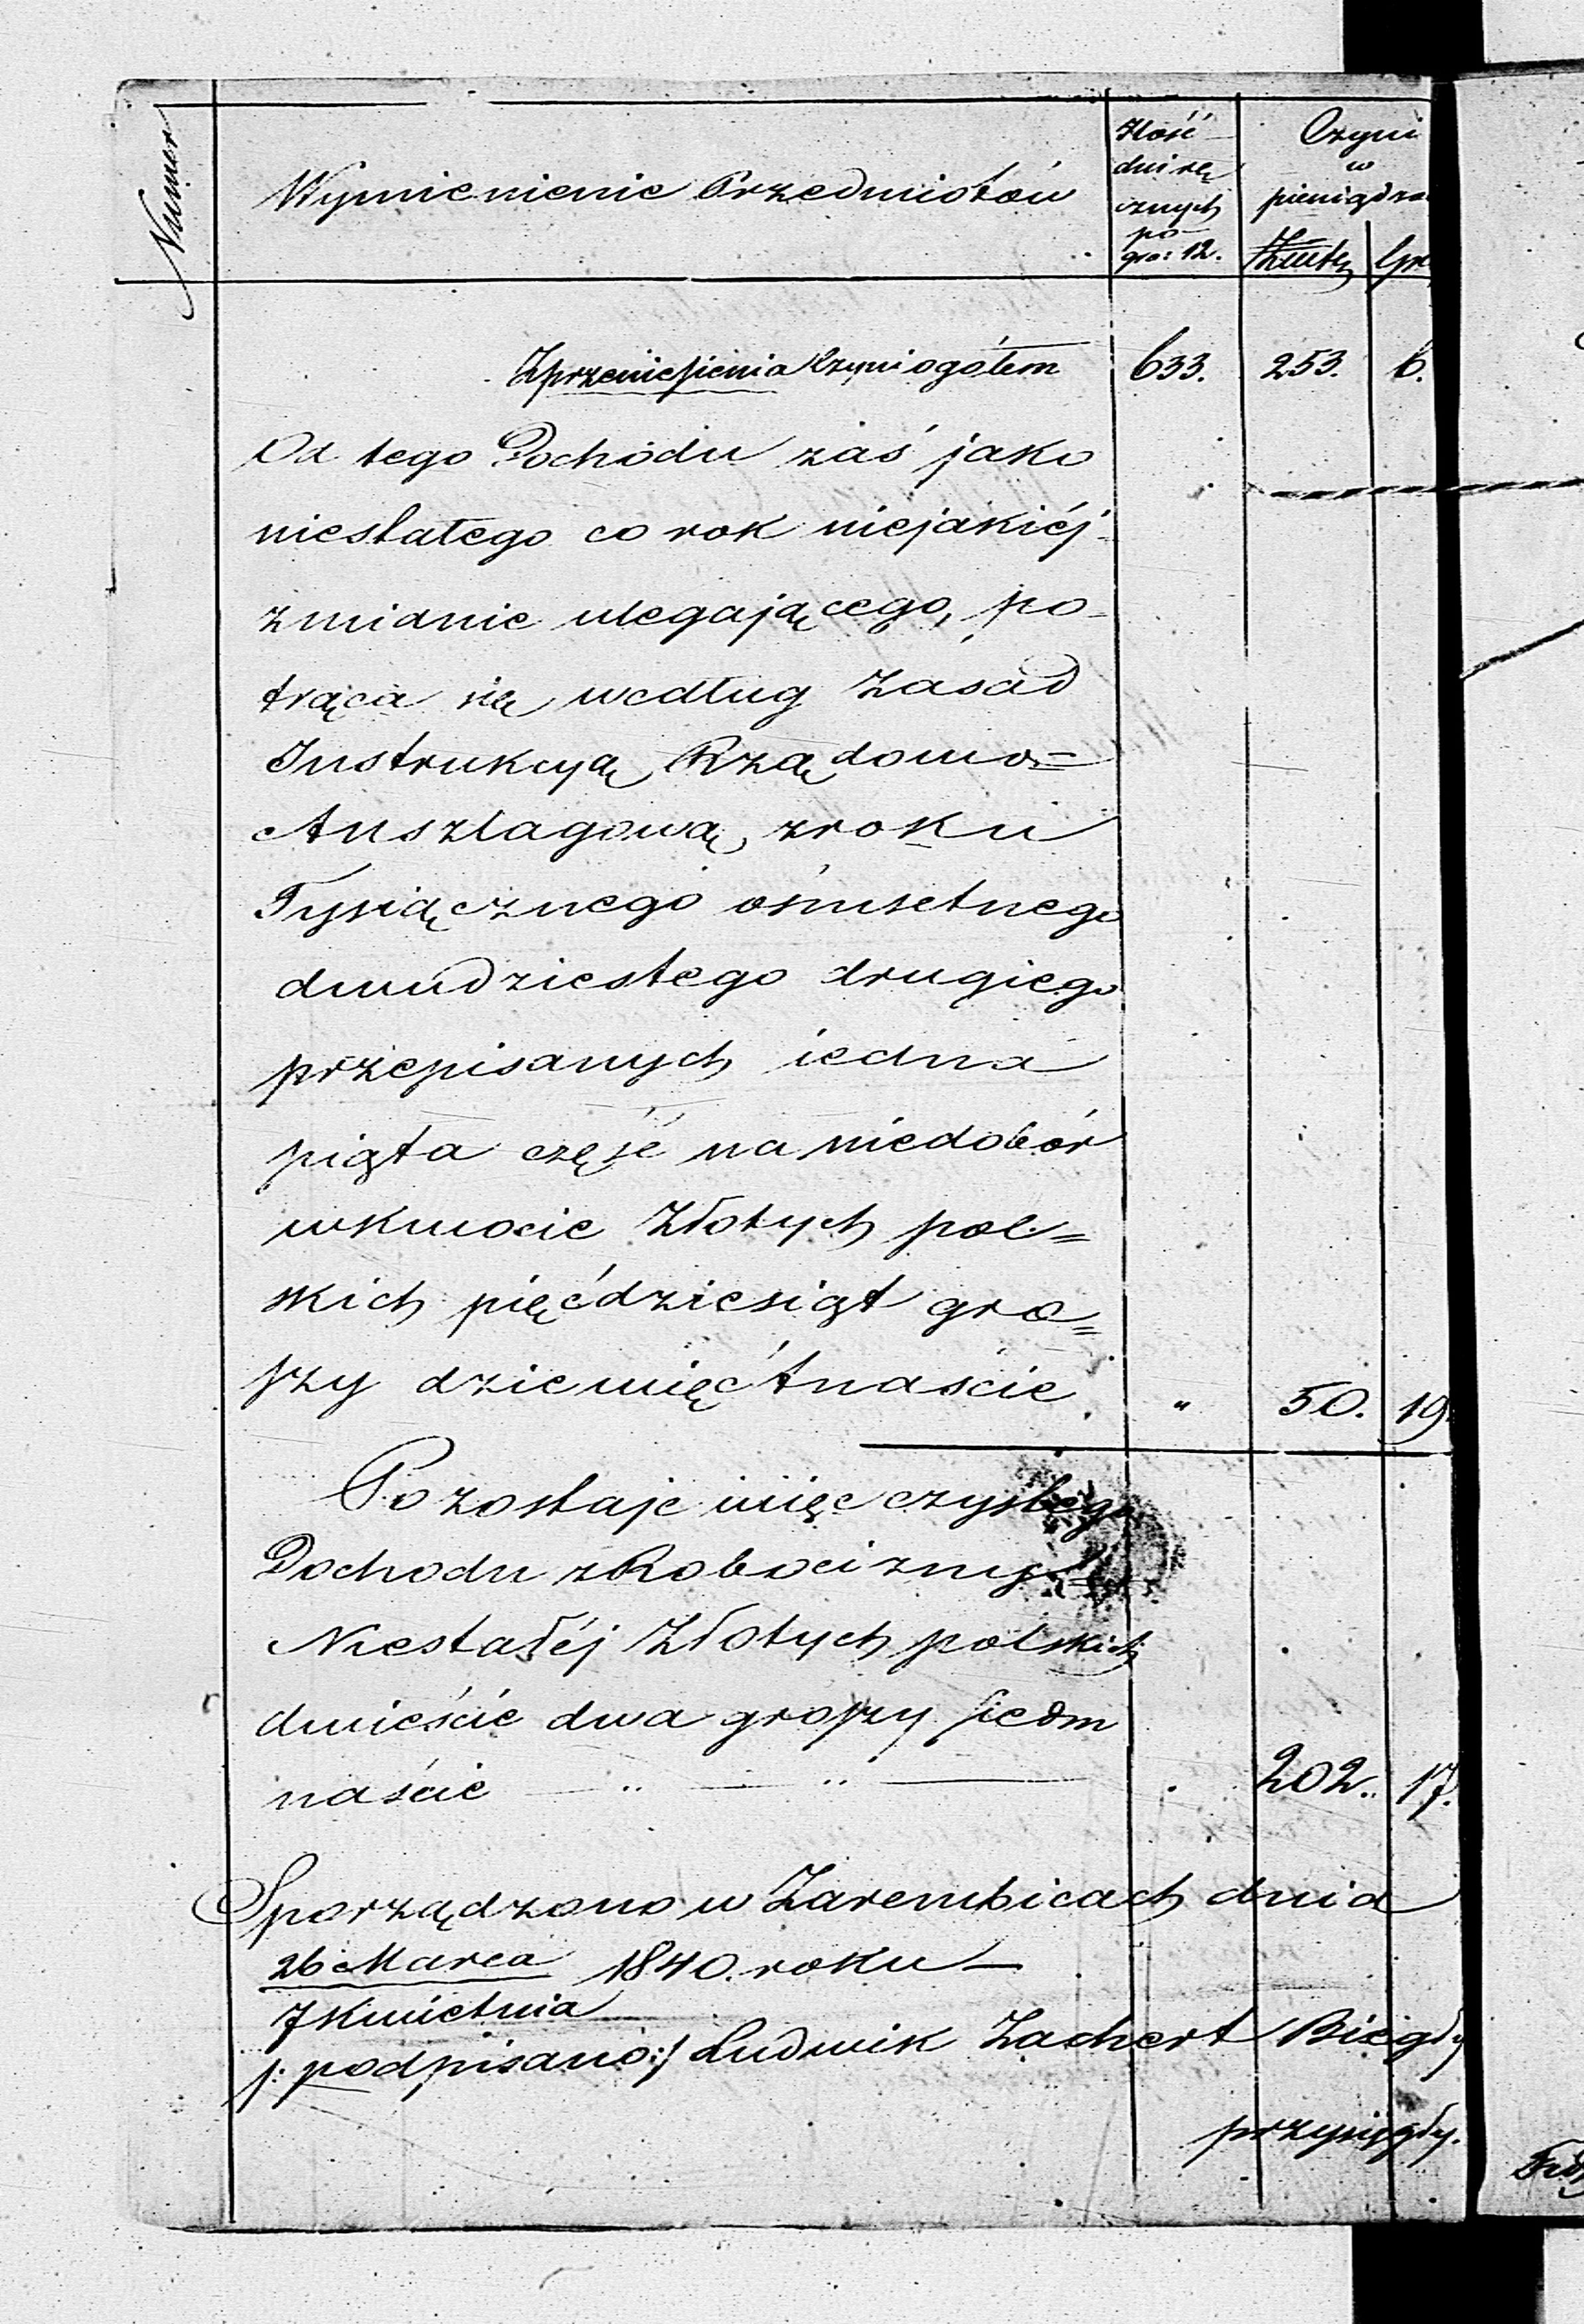 Numer
Wymienienie Przedmiotów
Ilość
dni rę
cznych
po
gro: 12.
Czyni
w
pieniądza
gr.
Zprzeniesienia Czyni ogółem 633. 253. 6.
Od tego Dochodu zaś jako
niestałego co rok niejakiéj
zmianie ulegającego, po-
trąca się według Zasad
Instrukcyą Rządowo=
Anszlagową zroku
Tysiącznego ośmsetnego
dwudziestego drugiego
przepisanych iedna
piąta część na niedobór
wkwocie Złotych pol=
skich pięćdziesiąt gro=
szy dziewięćtnaście. " 50. 19.
Pozostaje więc czystego
Dochodu zRobocizny
Niestałéj Złotych polskich
dwieście dwa groszy siedm
naście — .. — .. — 202.. 17.
Sporządzono w Zarembicach dnia
26 Marca 1840. roku —
7 Kwietnia
/: podpisano :/ Ludwik Zachert Biegły
przysięgły.